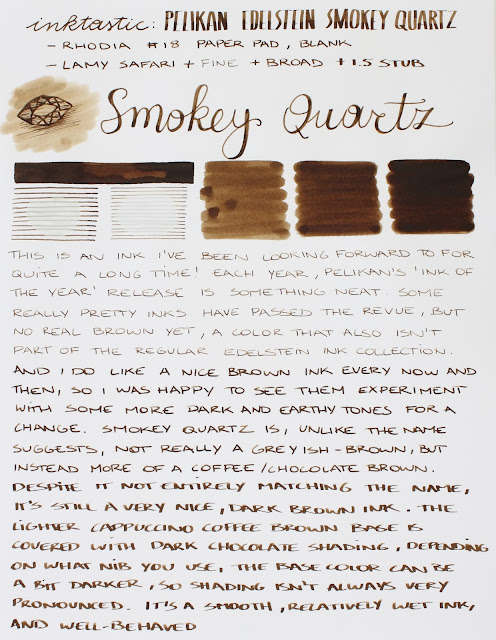 inktastic: PELIKAN EDELSTEIN SMOKEY QUARTZ
- RHODIA #18 PAPER PAD, BLANK
- LAMY SAFARI + FINE + BROAD + 1.5 STUB
Smokey Quartz
THIS IS AN INK I'VE BEEN LOOKING FORWARD TO FOR
QUITE A LONG TIME! EACH YEAR, PELIKAN'S 'INK OF
THE YEAR' RELEASE IS SOMETHING NEAT. SOME
REALLY PRETTY INKS HAVE PASSED THE REVUE, BUT
NO REAL BROWN YET, A COLOR THAT ALSO ISN'T
PART OF THE REGULAR EDELSTEIN INK COLLECTION.
AND I DO LIKE A NICE BROWN INK EVERY NOW AND
THEN, SO I WAS HAPPY TO SEE THEM EXPERIMENT
WITH SOME MORE DARK AND EARTHY TONES FOR A
CHANGE. SMOKEY QUARTZ IS, UNLIKE THE NAME
SUGGESTS, NOT REALLY A GREYISH-BROWN, BUT
INSTEAD MORE OF A COFFEE/CHOCOLATE BROWN.
DESPITE IT NOT ENTIRELY MATCHING THE NAME,
IT'S STILL A VERY NICE, DARK BROWN INK. THE
LIGHTER CAPPUCCINO COFFEE BROWN BASE IS
COVERED WITH DARK CHOCOLATE SHADING, DEPENDING
ON WHAT NIB YOU USE, THE BASE COLOR CAN BE
A BIT DARKER, SO SHADING ISN'T ALWAYS VERY
PRONOUNCED. IT'S A SMOOTH, RELATIVELY WET INK,
AND WELL-BEHAVED